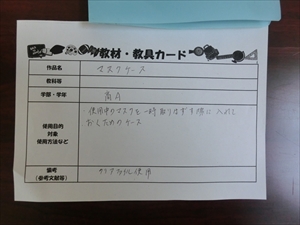 教材・教具カード
作品名 マスクケース
教科等
学部・学年 高A
使用目的
対象
使用方法など
使用中のマスクを一時取りはずす際に入れて
おくためのケース
備考
(参考文献等)
クリアファイル使用